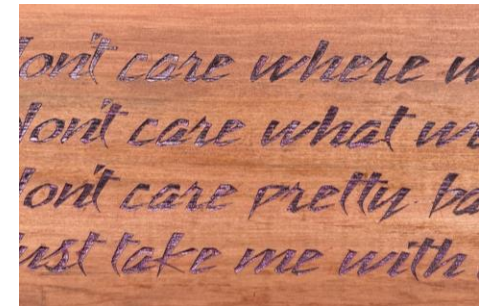 don't care where w
don't care what we
don't care pretty ba
Just take me with